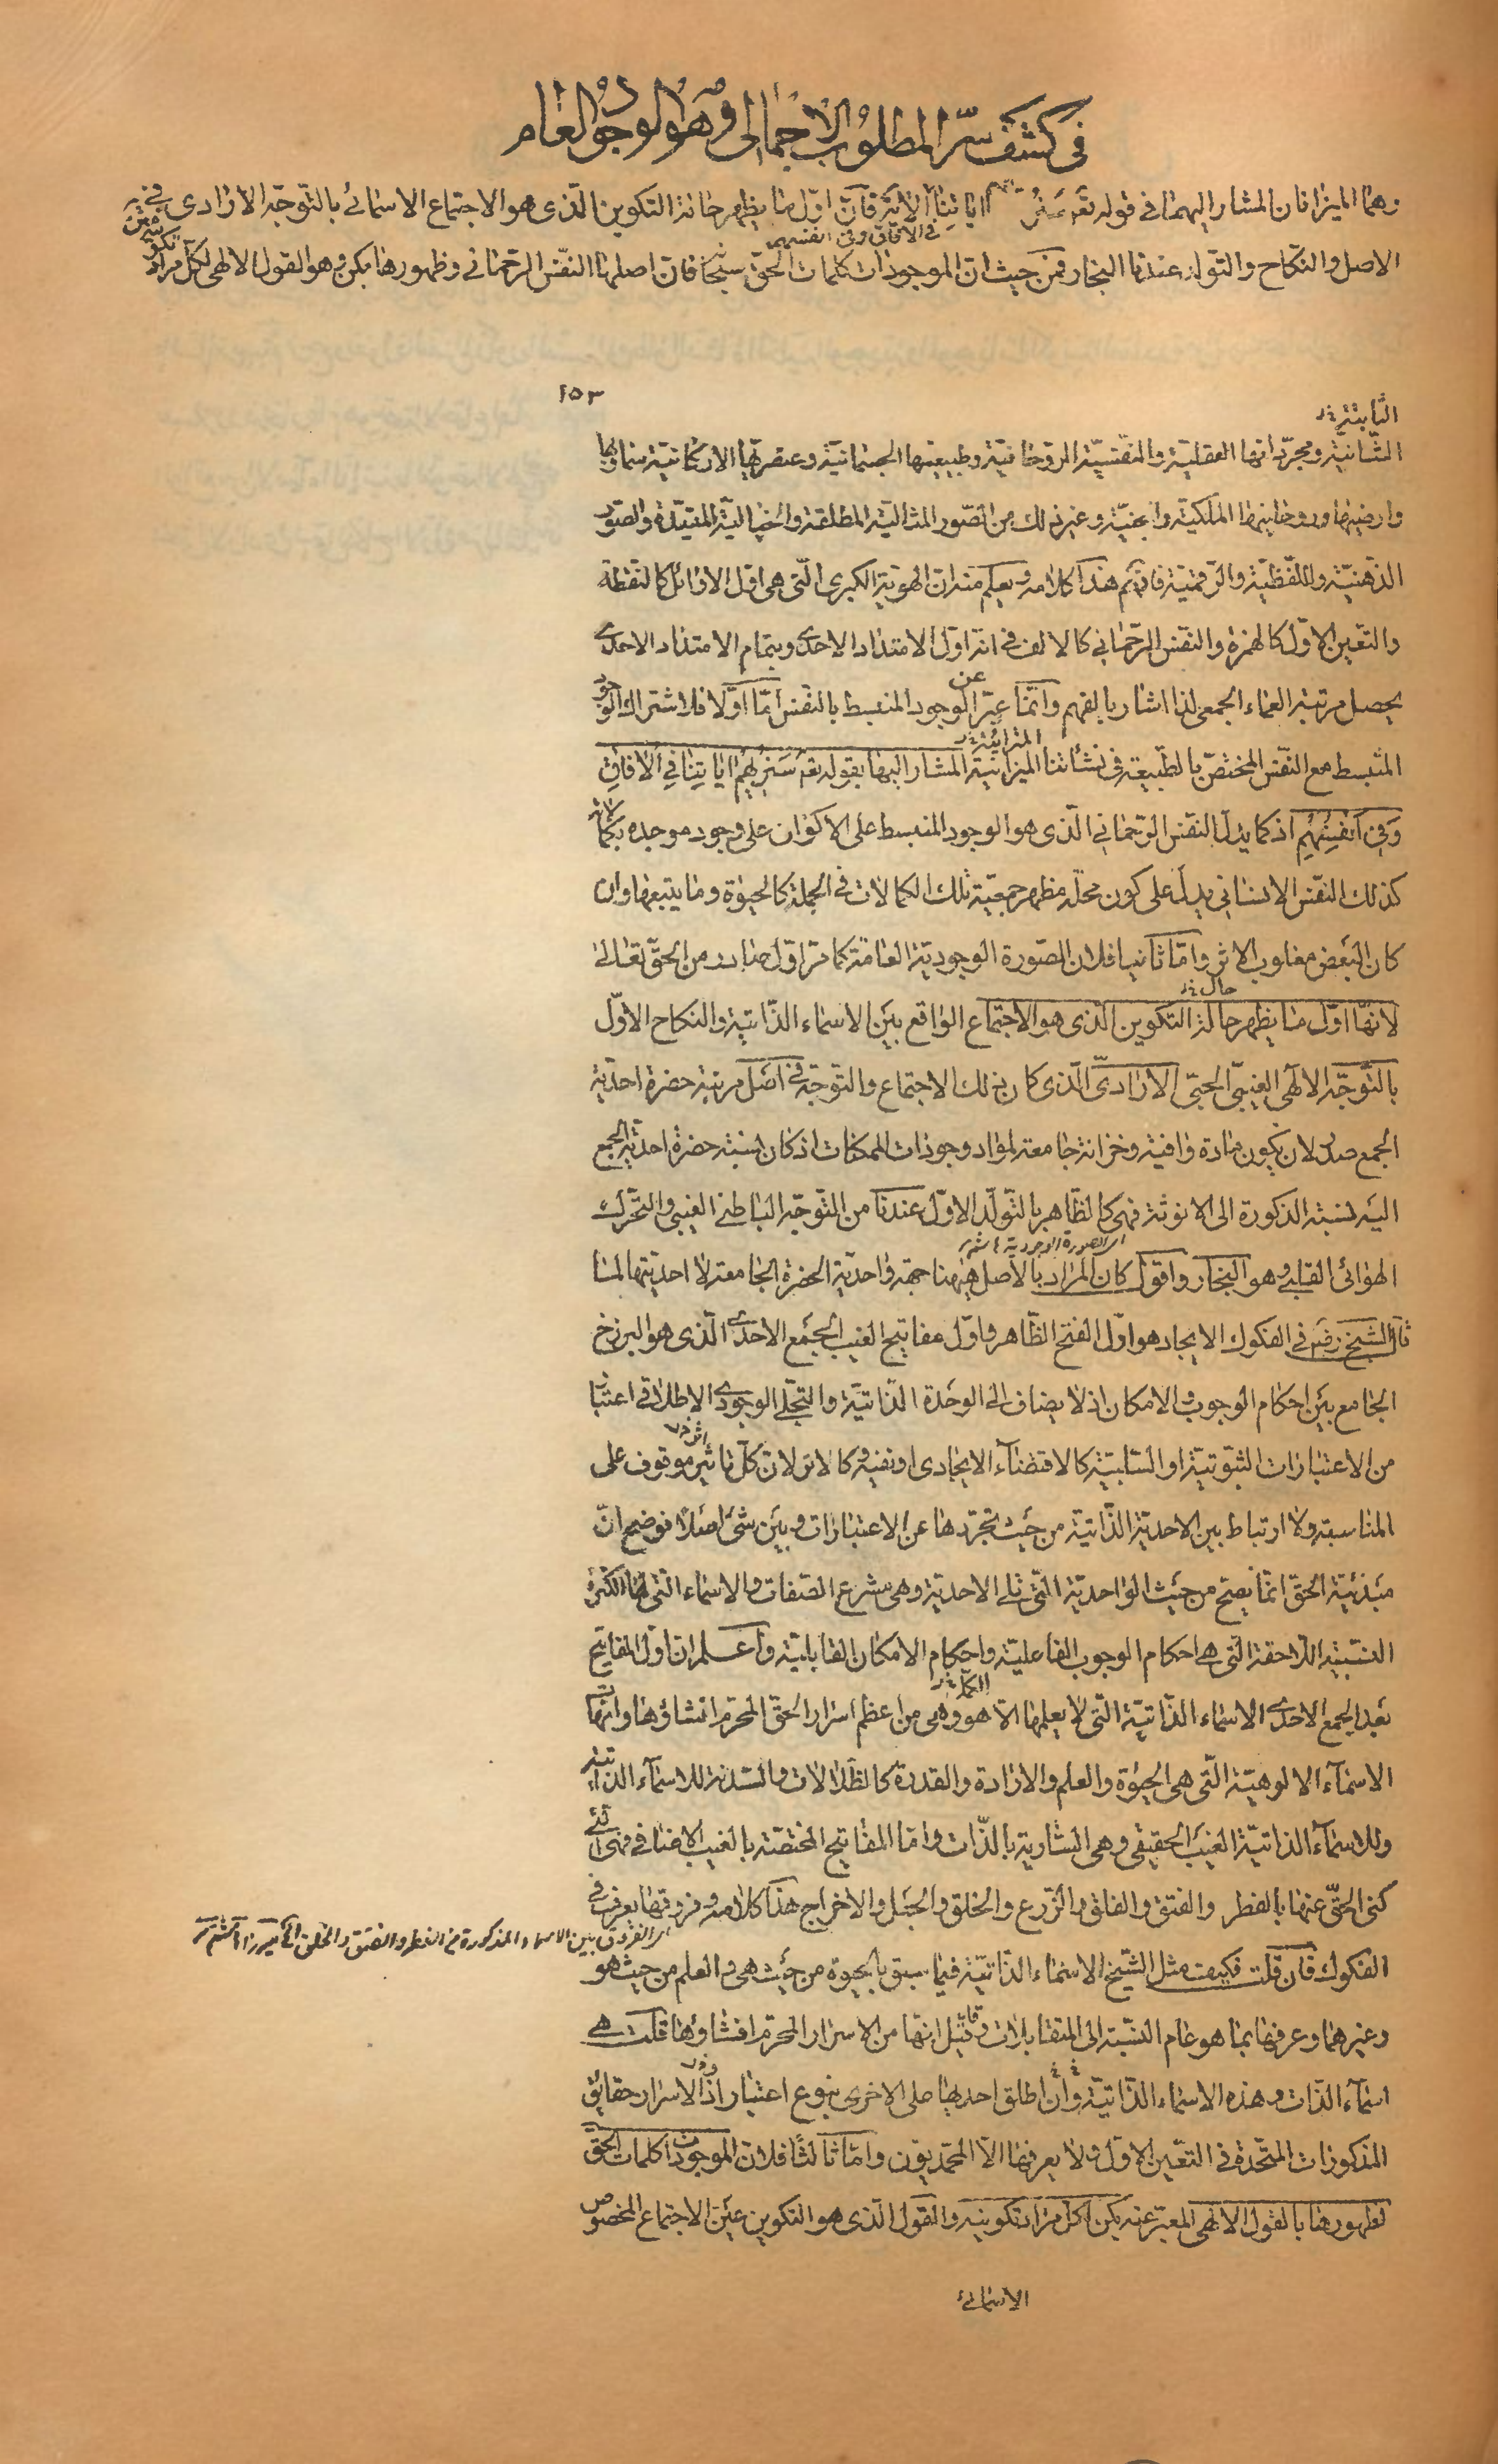 في كشف سرّ المطلوب الاجمالى وهو الوجود العام
وهما الميزانان المشار اليهما في قوله تعه سنريهم اياتنا الاية فان اوّل ما يظهر حالة التكوين الّذى هو الاجتماع الاسمائى بالتوجّه الارادى في
في الآفاق وفى انفسهم
الاصل والنكاح والتولد عندنا البخار فمن حيث ان الموجودات كلمات الحقّ سبحانه فان اصلها النفس الرحمانى وظهورها بكن وهو القول الالهى لكل مراد
١٥٣
الثابتة
الثانية ومجرّداتها العقلية والنفسيّة الروحانيّة وطبيعتها الجسمانيّة وعنصريّها الاركانيّة سماويها
وارضيها وروحانيتها الملكيّة والجنيّة وغير ذلك من الصّور المثاليّة المطلقة والخياليّة المقيّدة والصّور
الذهنيّة واللفظيّة والرّقميّة فافهم هذا كلامه ويعلم منه ان الهويّة الكبرى الّتى هى اوّل الاوائل كالنقطة
والتعين الاوّل كالهمزة والنفس الرّحمانى كالالف في انه اوّل الامتداد الاحدى وبتمام الامتداد الاحدى
يحصل مرتبة العماء الجمعى لذا اشار بالفهم وانّما عبّر عن الوجود المنبسط بالنفس امّا اوّلا فلاشتراك الوجود
المنبسط مع النفس المختصّ بالطبيعة في نشأتنا الميزانيّة المشار اليها بقوله تعه سَنُريهِمْ اياتِنا فِي الآفاقِ
المرآتية
وَفي اَنفُسِهِم اذ كما يدلّ النفس الرّحمانى الّذى هو الوجود المنبسط على الاكوان على وجود موجده بكمالاته
كذلك النفس الانسانى يدلّ على كون محلّه مظهر جمعيّة تلك الكمالات في الجملة كالحيوة وما يتبعها وان
كان البعض مغلوب الاثر وامّا ثانيا فلان الصّورة الوجوديّة العامّة كما مر اوّل صادر من الحقّ تعالى
حال
لانّها اوّل ما يظهر حالة التكوين الّذى هو الاجتماع الواقع بين الاسماء الذّاتية والنكاح الاوّل
بالتوجّه الالهى الغيبىّ الحبّى الارادىّ الّذى كان ذلك الاجتماع والتوجّه في اصل مرتبة حضرة احديّة
الجمع صلح لان يكون مادة وافية وخزانة جامعة لمواد وجودات الممكنات اذ كان نسبة حضرة احديّة الجمع
اليه نسبة الذكورة الى الانوثة فهى كالظّاهر بالتولّد الاوّل عندنا من التوجّه الباطنى الغيبى والتحرّك
اى الصورة الوجودية
الهوائى القلبى وهو البخار واقول كان المراد بالاصل هيهنا جهة واحديّة الحضرة الجامعة لا احديّتها لما
قال الشيخ رضه في الفكوك الايجاد هو اوّل الفتح الظّاهر واوّل مفاتيح الغيب الجمع الاحدى الّذى هو البرزخ
الجامع بين احكام الوجوب والامكان اذ لا يضاف الى الوحدة الذّاتيّة والتجلّى الوجودى الاطلاقى اعتبار
من الاعتبارات الثبوتيّة او السّلبيّة كالاقتضاء الايجادى او نفيه كالاثر لان كلّ تاثير موقوف على
المناسبة ولا ارتباط بين الاحديّة الذّاتيّة من حيث تجرّدها عن الاعتبارات وبين شئ اصلا فوضح انّ
مبدئيّة الحقّ انّما يصحّ من حيث الواحديّة الّتى تلى الاحدية وهى مشرع الصّفات والاسماء الّتى لها الكثرة
النسبيّة اللاحقة الّتى هى احكام الوجوب الفاعليّة واحكام الامكان القابليّة واعلم ان اوّل المفاتيح
الكمّل
بعد الجمع الاحدى الاسماء الذّاتيّة الّتى لا يعلمها الّا هو وهى من اعظم اسرار الحقّ المحرّم افشاؤها وامّهات
الاسماء الالوهيّة الّتى هى الحيوة والعلم والارادة والقدرة كالظّلالات والسّدنة للاسماء الذّاتيّة
وللاسماء الذّاتيّة الغيب الحقيقى وهى السّارية بالذّات وامّا المفاتيح المختصّة بالغيب الاضافى فهى الّتى
كنى الحقّ عنها بالفطر والفتق والفلق والزّرع والخلق والجعل والاخراج هذا كلامه وفروقها يعرف في
اى الفروق بين الاسماء المذكورة من الفطر والفتق والخلق
الفكوك فان قلت فكيف مثل الشّيخ الاسماء الذّاتيّة فيما سبق بالحيوة من حيث هى والعلم من حيث هو
وغيرهما وعرفها بما هو عام النسبة الى المتقابلات وقيل انها من الاسرار المحرّم افشاؤها قلت هى
اسماء الذّات وهذه الاسماء الذّاتيّة وان اطلق احديها على الاخرى بنوع اعتبار اذ الاسرار حقايق
المذكورات المتّحدة في التعيّن الاوّل ولا يعرفها الّا المحمّديّون وامّا ثالثا فلان الموجودات كلمات الحقّ
لظهورها بالقول الالهى المعبّر عنه بكن لكلّ مراد تكوينه والقول الّذى هو التكوين عين الاجتماع المخصوص
الاسمائى